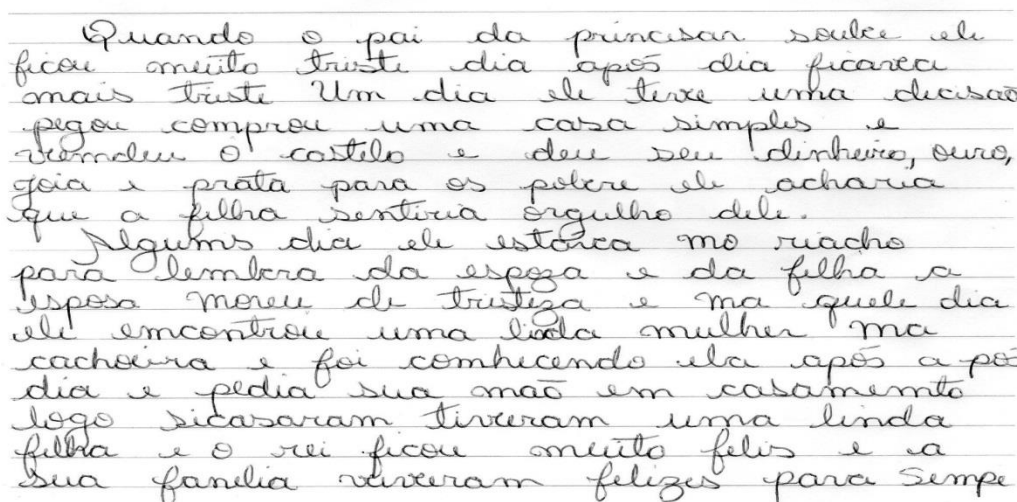 Quando o pai da princisar soube ele
ficou muito triste dia após dia ficava
mais triste Um dia ele teve uma decisão
pegou comprou uma casa simples e
vemdeu o castelo e deu seu dinheiro, ouro,
joia e prata para os pobre ele acharia
que a filha sentiria orgulho dele.
Algums dia ele estava mo riacho
para lembra da espoza e da filha a
esposa moreu de tristeza e ma quele dia
ele emcontrou uma linda mulher ma
cachoeira e foi comhecendo ela após a pós
dia e pedia sua mão em casamemto
logo sicasaram tiveram uma linda
filha e o rei ficou muito felis e a
sua familia viveram felizes para sempe